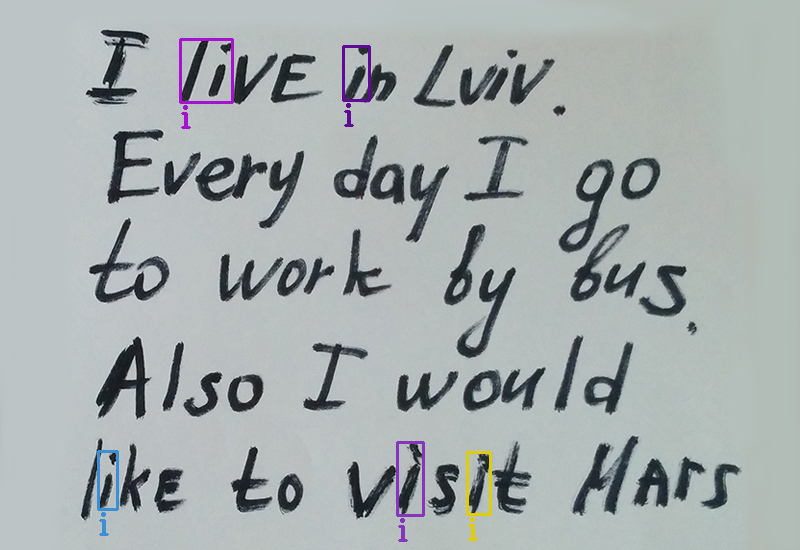 I liVE in Lviv.
Every day I go
to work by bus.
Also I would
likE to visit MArs
i i
i i i